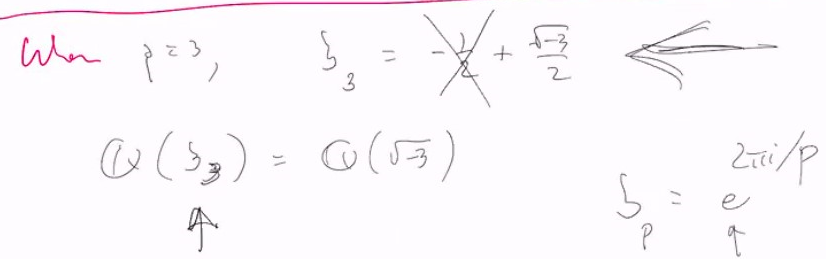 When p = 3, ζ_3 = -1/2 + √-3/2
ℚ(ζ_3) = ℚ(√-3)
ζ_p = e^{2πi/p}